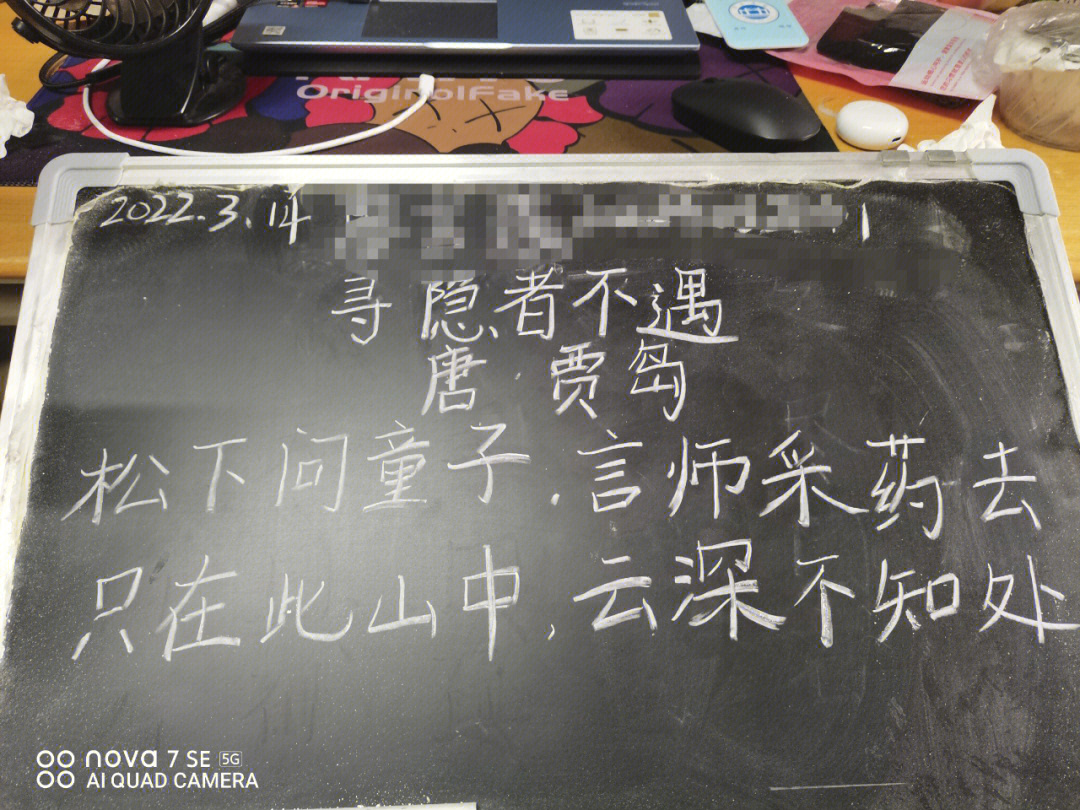 OriginalFake
2022.3.14
寻隐者不遇
唐·贾岛
松下问童子,言师采药去
只在此山中,云深不知处
nova 7 SE 5G
AI QUAD CAMERA